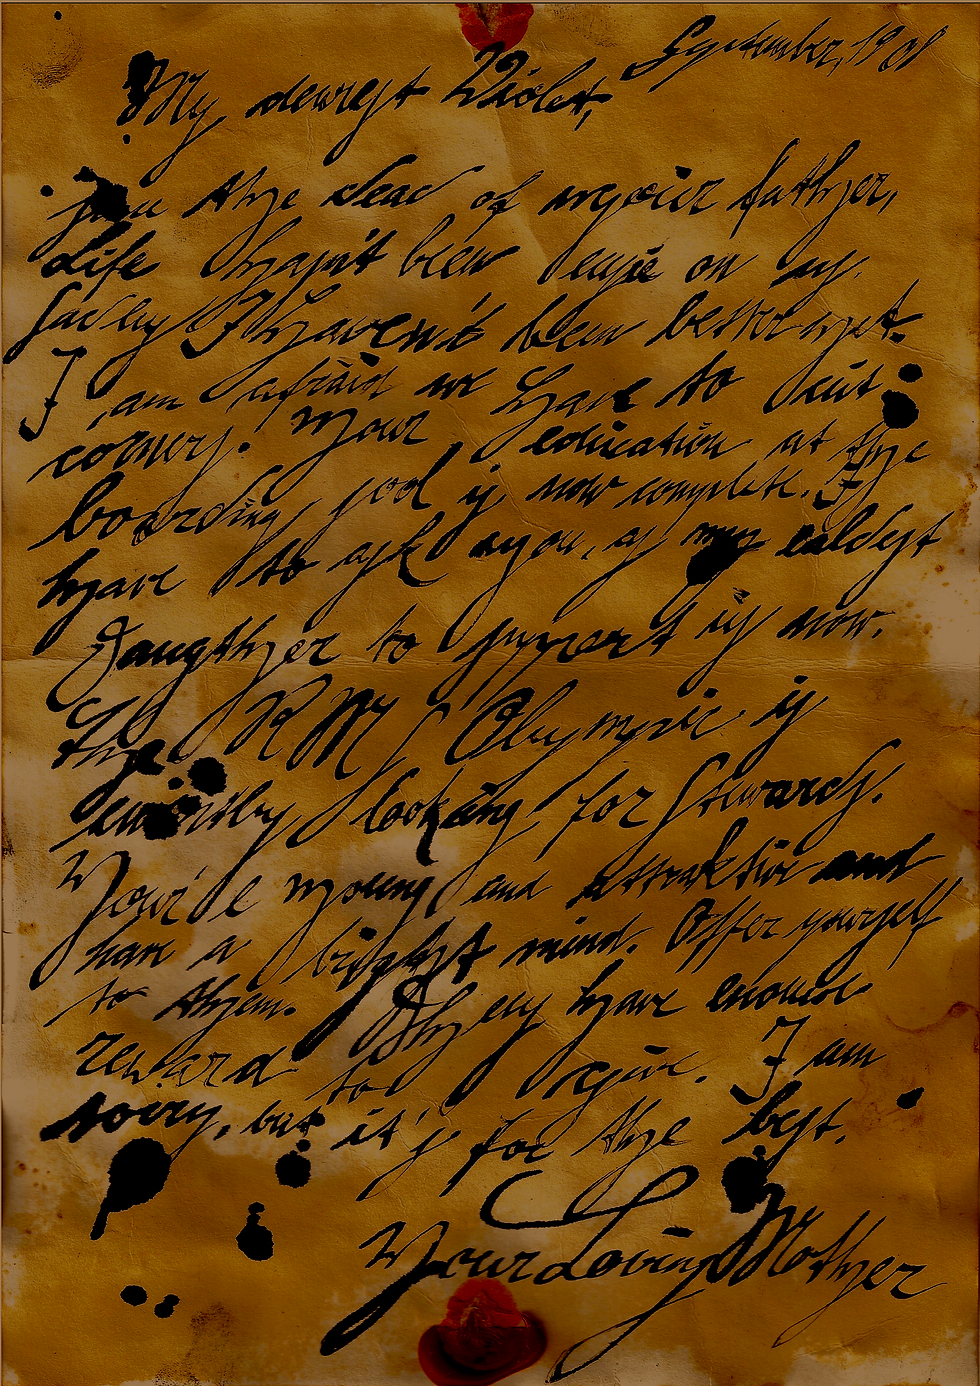 September, 19
My dearest Violet,
the dead of your father,
Life hasn't been easie on us
lately I haven't been better yet.
I am afraid we have to cut
corners. Your education at the
boarding is now complete. I
have to ask you, as my ealdest
Daugther to support us now.
The RMS Olympic is
looking for Stewards.
Your'e young and attraktive and
have a bright mind. Offer yourself
to them. They have enough
reward to give. I am
sorry, but it's for the best.
Your Loving Mother